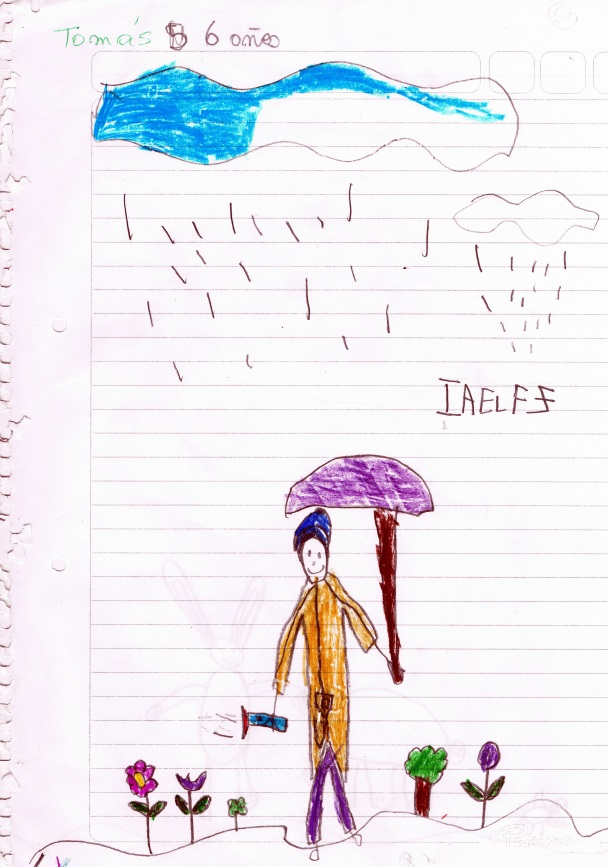 Tomás 6 años
IAELFF